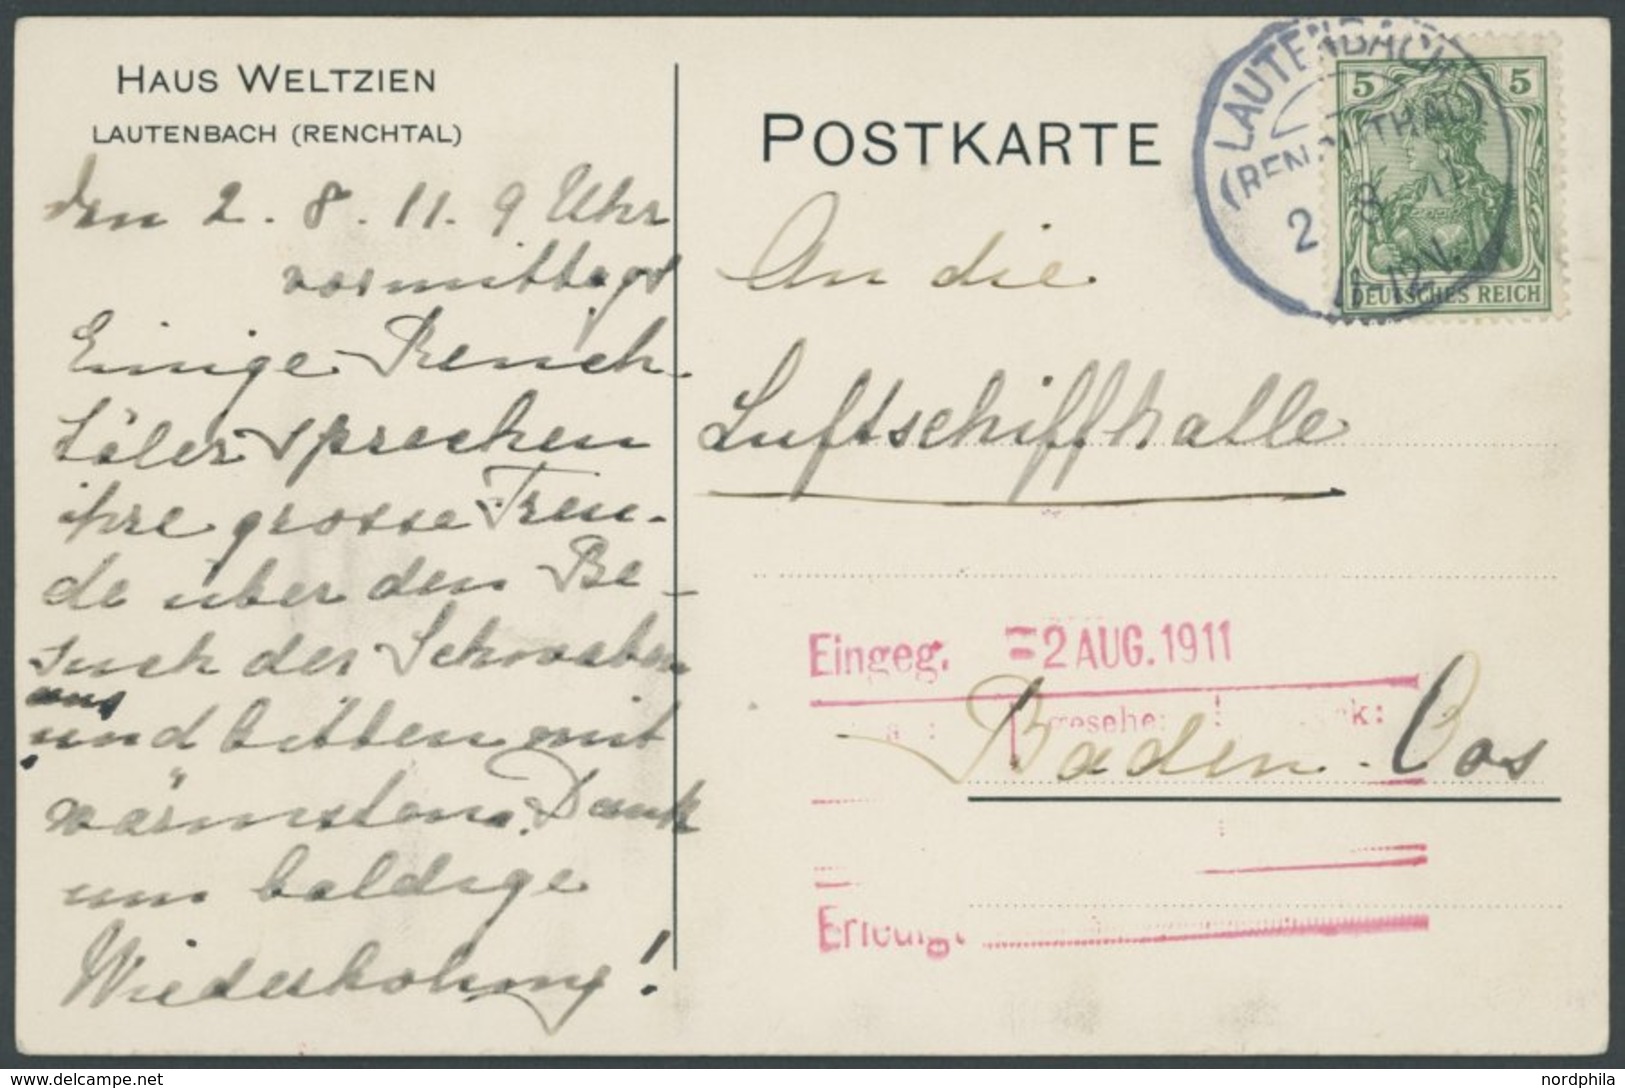 HAUS WELTZIEN
LAUTENBACH (RENCHTAL)
den 2. 8. 11. 9 Uhr
vormittags
Einige Rench
täler sprechen
ihre grosse Freu-
de über den Be-
such der Schwaben
aus
und bitten mit
wärmstem Dank
um baldige
Wiederholung!
POSTKARTE
LAUTENBACH
(RENCHTHAL)
2 8 11
11-12V.
5 5
DEUTSCHES REICH
An die
Luftschiffhalle
Eingeg. =2 AUG. 1911
Baden-Oos
Erledigt
delcampe.net
nordphila